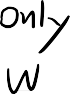 only
W